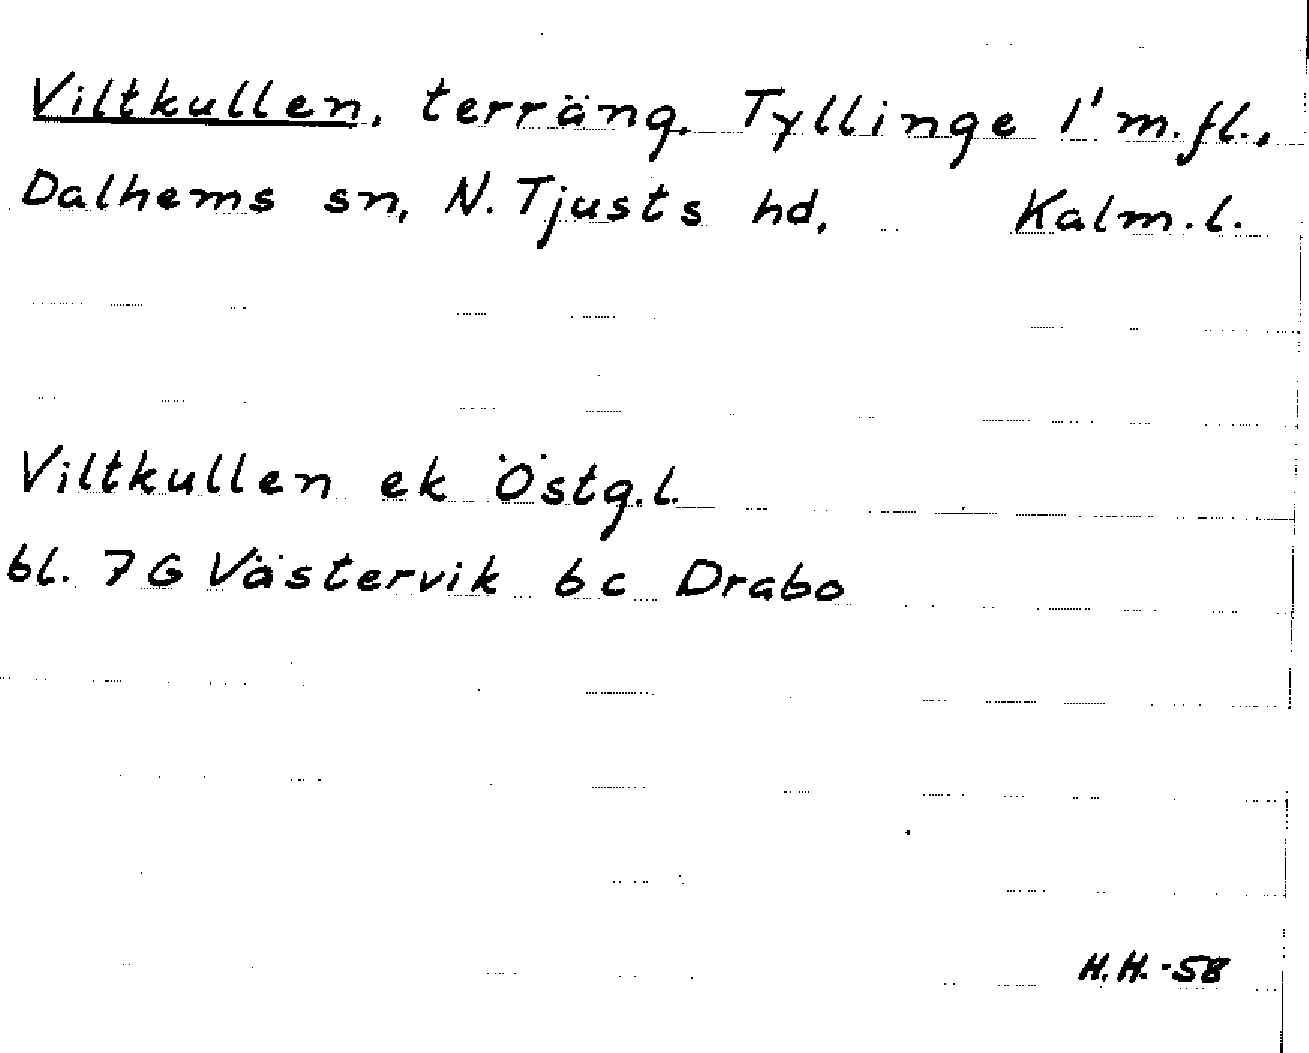 Viltkullen, terräng, Tyllinge 1' m.fl.,
Dalhems sn, N. Tjusts hd, Kalm.l.
Viltkullen ek Östg.l.
bl. 7G Västervik 6c Drabo
H.H.-58